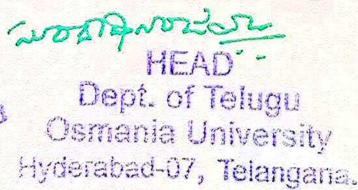 HEAD
Dept. of Telugu
Osmania University
Hyderabad-07, Telangana.